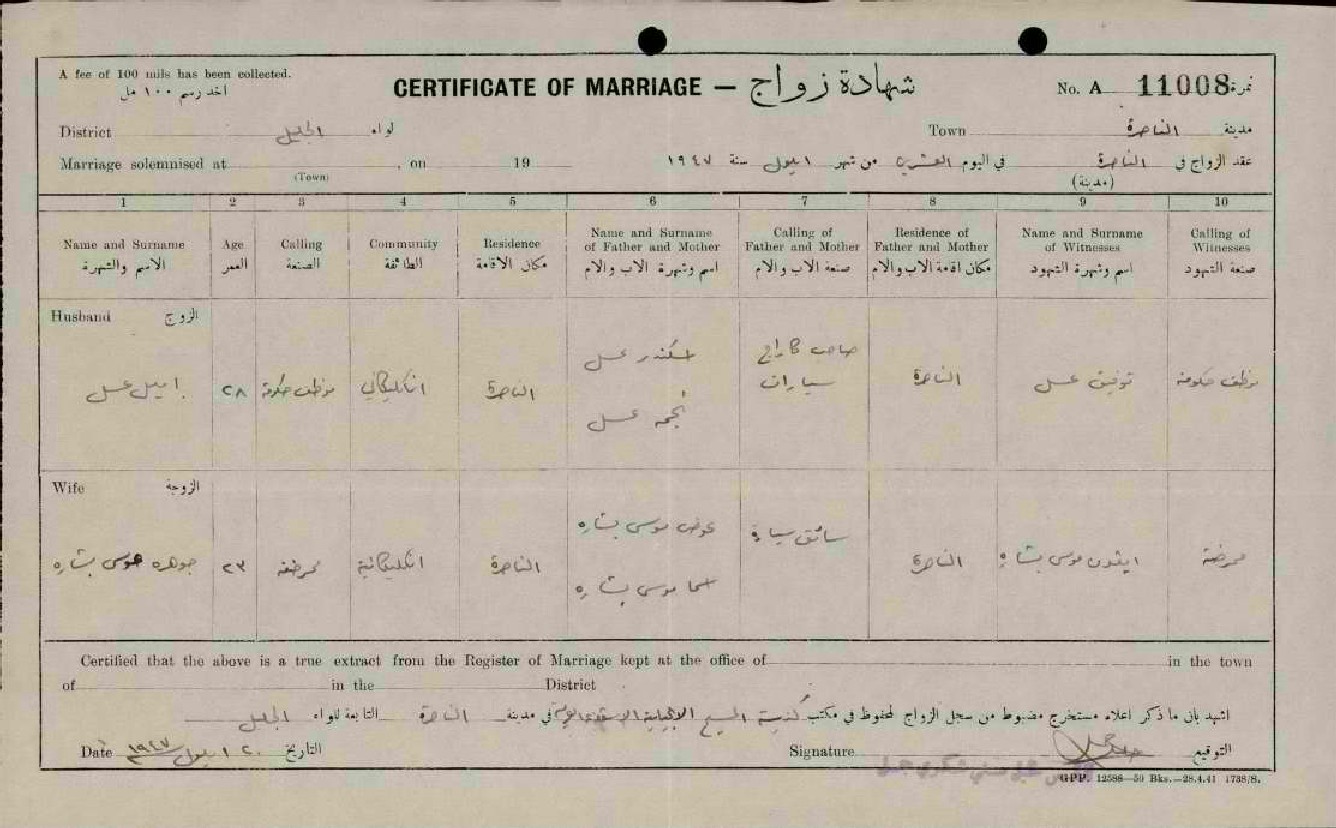 A fee of 100 mils has been collected.
اخذ رسم ١٠٠ مل
CERTIFICATE OF MARRIAGE — شهادة زواج
No. A 11008 نمرة
District الجليل لواء
Town الناصرة مدينة
Marriage solemnised at , on 19
(Town)
عقد الزواج في الناصرة في اليوم العشرين من شهر ايلول سنة ١٩٤٧
(مدينة)
1 2 3 4 5 6 7 8 9 10
Name and Surname
الاسم والشهرة
Age
العمر
Calling
الصنعة
Community
الطائفة
Residence
مكان الاقامة
Name and Surname
of Father and Mother
اسم وشهرة الاب والام
Calling of
Father and Mother
صنعة الاب والام
Residence of
Father and Mother
مكان اقامة الاب والام
Name and Surname
of Witnesses
اسم وشهرة الشهود
Calling of
Witnesses
صنعة الشهود
Husband الزوج
اميل عسل
٢٨
موظف حكومة
انكليكاني
الناصرة
اسكندر عسل
نجمه عسل
صاحب كاراج
سيارات
الناصرة
توفيق عسل
موظف حكومة
Wife الزوجة
جوهره موسى بشاره
٢٣
ممرضة
انكليكانية
الناصرة
عوض موسى بشاره
موسى بشاره
سائق سيارة
الناصرة
موسى بشاره
ممرضة
Certified that the above is a true extract from the Register of Marriage kept at the office of in the town
of in the District
اشهد بان ما ذكر اعلاه مستخرج مضبوط من سجل الزواج المحفوظ في مكتب كنيسة المسيح الانجيلية في مدينة الناصرة التابعة للواء الجليل
Date ٢٠ ايلول ١٩٤٧ التاريخ
Signature التوقيع
GPP. 12586—50 Bks.—28.4.41 1738/S.